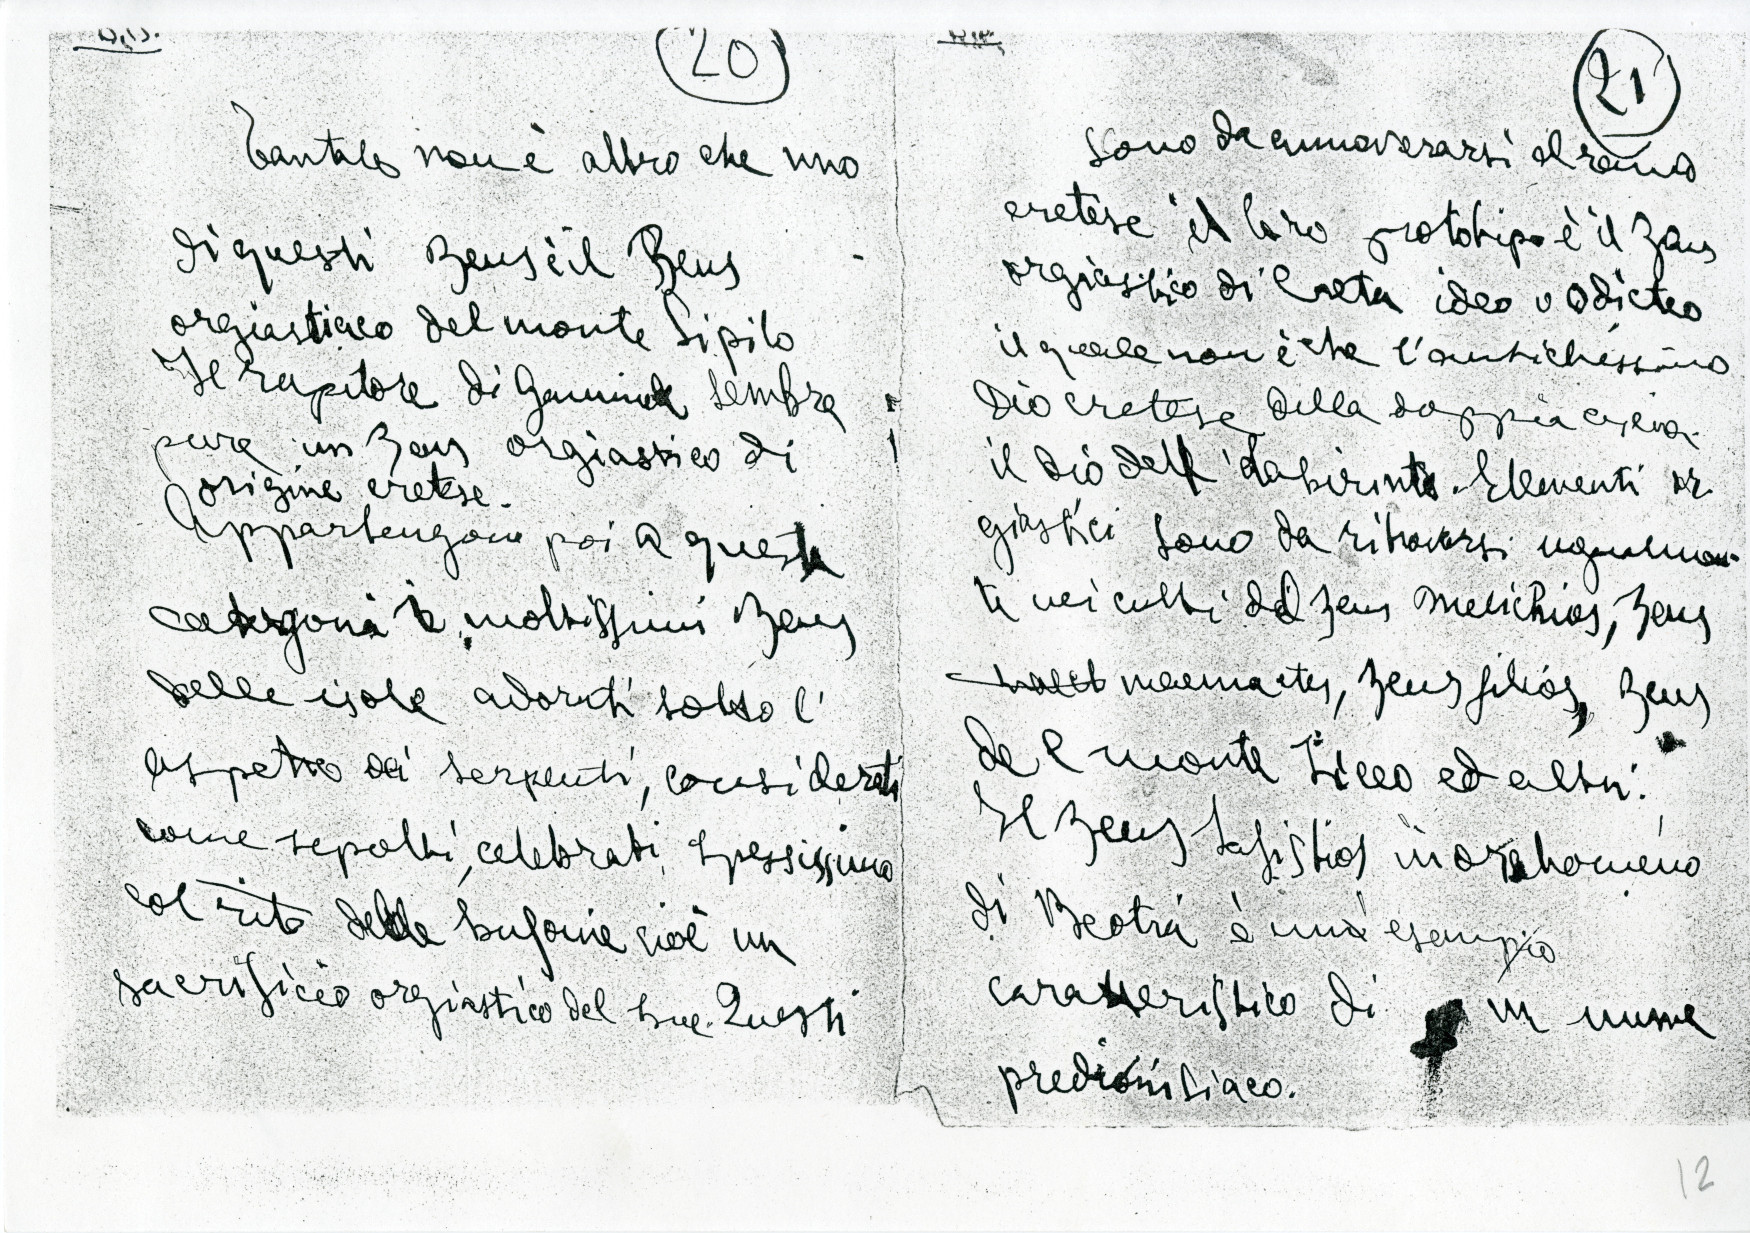 20
Tantalo non è altro che uno
di questi Zeus è il Zeus
orgiastiaco del monte Sipilo
Il rapitore di Ganimede sembra
pure un Zeus orgiastico di
origine cretese.
Appartengono poi a questa
categoria moltissimi Zeus
delle isole adorati sotto l'
aspetto di serpenti, considerati
come sepolti, celebrati spessissimo
col rito delle bufonie cioè un
sacrificio orgiastico del bue. Questi
21
sono da annoverarsi al ramo
cretese il loro prototipo è il Zeus
orgiastico di Creta ideo o dicteo
il quale non è che l'antichissimo
Dio cretese della doppia
il dio del labirinto. Elementi or
giastici sono da ritrovarsi ugualmen
te nei culti del Zeus Meilichios, Zeus
maemactes, Zeus filios, Zeus
del monte Liceo ed altri.
Il Zeus Lafistios in orchomeno
di Beotia è un esempio
caratteristico di un nume
predionisiaco.
12